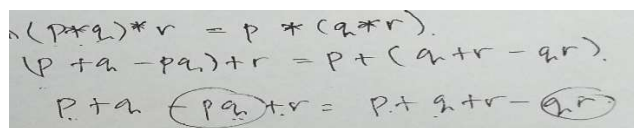 (p*q)*r = p * (q*r).
(p + q - pq) + r = p + (q + r - qr).
p + q - pq + r = p + q + r - qr